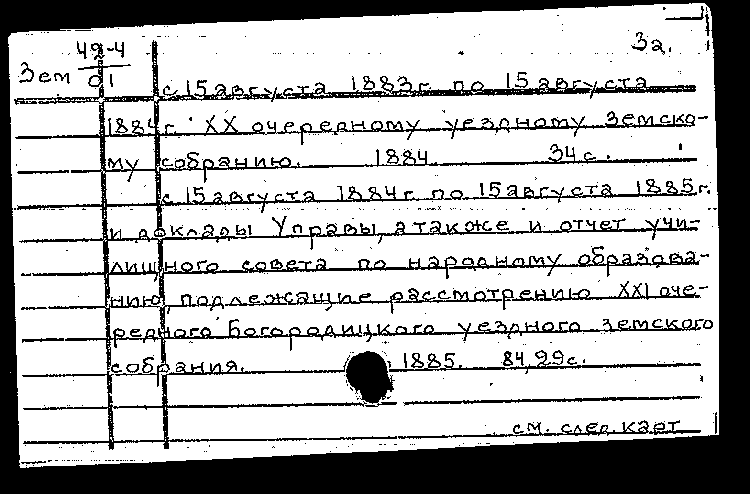 3а.
Зем 49-4
01
с 15 августа 1883г. по 15 августа
1884г. XX очередному уездному Земско-
му собранию. 1884. 34 с.
с 15 августа 1884г. по 15 августа 1885г.
и доклады Управы, а также и отчет учи-
лищного совета по народному образова-
нию, подлежащие рассмотрению XXI оче-
редного Богородицкого уездного земского
собрания. 1885. 84, 29 с.
см. след. карт